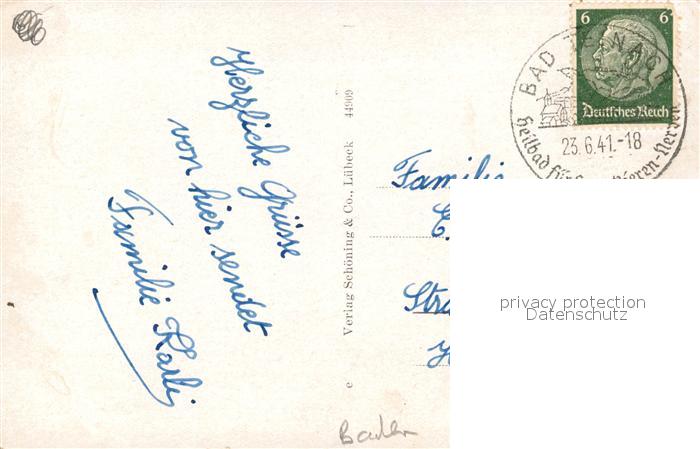 Herzliche Grüsse
von hier sendet
Familie
Verlag Schöning & Co., Lübeck 44909
e
6 6
Deutsches Reich
BAD
23.6.41.-18
Heilbad für Nieren-Nerven
Familie
Str
privacy protection
Datenschutz